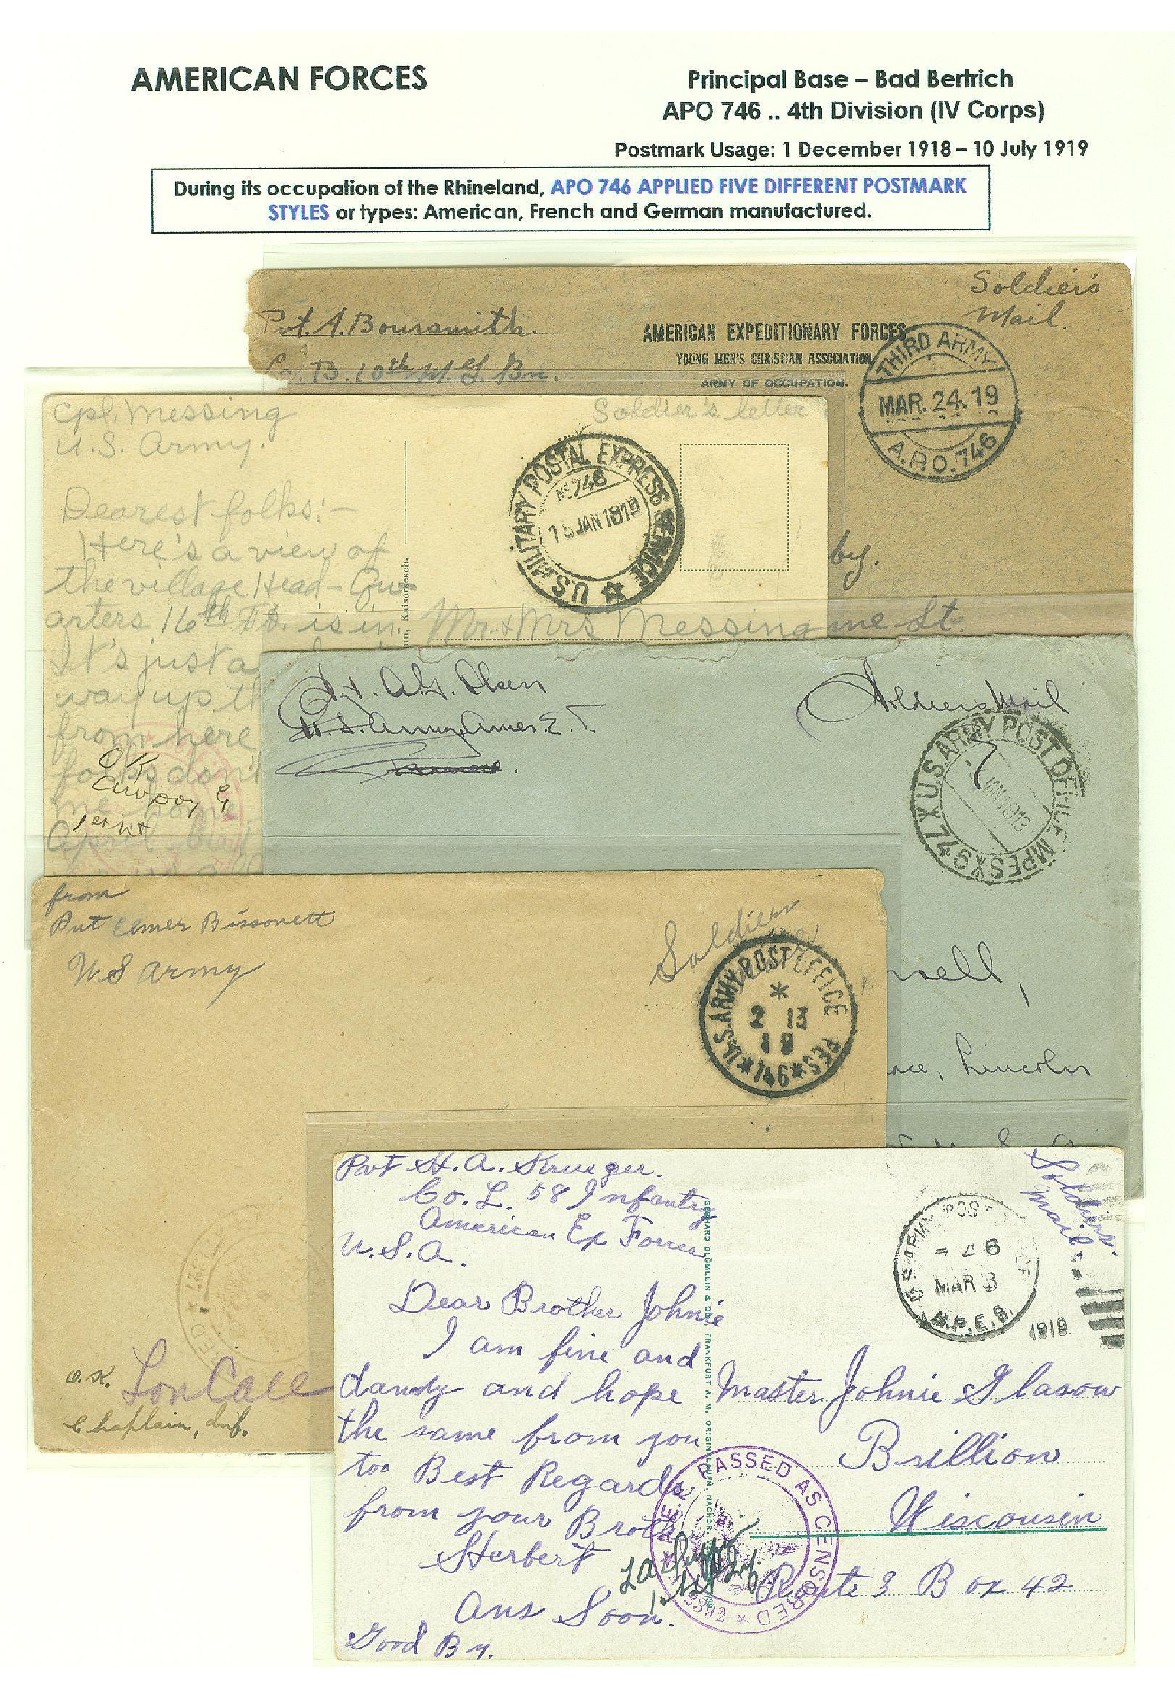 AMERICAN FORCES
Principal Base – Bad Bertrich
APO 746 .. 4th Division (IV Corps)
Postmark Usage: 1 December 1918 – 10 July 1919
During its occupation of the Rhineland, APO 746 APPLIED FIVE DIFFERENT POSTMARK
STYLES or types: American, French and German manufactured.
Soldier's
Mail.
Pvt A. Boursmith.
Co. B. 10th M. G. Bn.
AMERICAN EXPEDITIONARY FORCES
YOUNG MEN'S CHRISTIAN ASSOCIATION
ARMY OF OCCUPATION.
THIRD ARMY
MAR. 24. 19
A.P.O. 746
by.
me St.
Cpl. Messing
U.S. Army.
Soldier's letter
U.S. MILITARY POSTAL EXPRESS SERVICE
No 746
JAN 1919
Dearest folks:-
Here's a view of
the village Head-Qu-
arters 16th is in.
It's just a
way up th
from here
folks don't
me
April
Mr. & Mrs Messing
OK
1st Lt
Pvt. A. H. Olsen
U.S. Army Amer. E. F.
Soldiers Mail
U.S. ARMY POST OFFICE M.P.E.S. X 746 X
nell,
nce, Lincoln
from
Pvt Elmer Bissonett
U S Army
Soldiers
U.S. ARMY POST OFFICE
*
2 13
19
P.E.S. * 746 *
O.K.
Lon Call
Chaplain, Inf.
Pvt H. A. Krueger.
Co. L. 58 Infantry
American Ex Forces
U.S.A.
Soldiers
Mail
MAR 3
1919
M.P.E.S.
Dear Brother Johnie
I am fine and
dandy and hope
the same from you
too Best Regards
from your Broth
Herbert
Ans Soon.
Good By.
Master Johnie Glasow
Brillion
Wisconsin
Route 3 Box 42
A.E.F. PASSED AS CENSORED